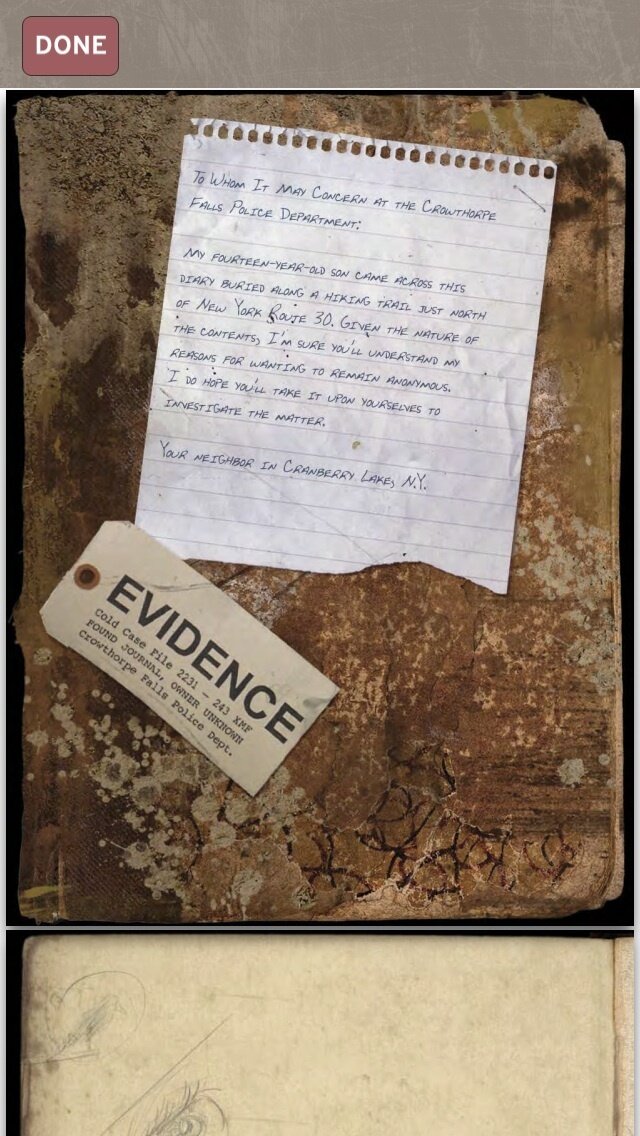 DONE
To Whom It May Concern at the Crowthorpe
Falls Police Department:
My fourteen-year-old son came across this
diary buried along a hiking trail just north
of New York Route 30. Given the nature of
the contents, I'm sure you'll understand my
reasons for wanting to remain anonymous.
I do hope you'll take it upon yourselves to
investigate the matter.
Your neighbor in Cranberry Lake, N.Y.
EVIDENCE
Cold Case File 2231 – 243 XMF
FOUND JOURNAL, OWNER UNKNOWN
Crowthorpe Falls Police Dept.